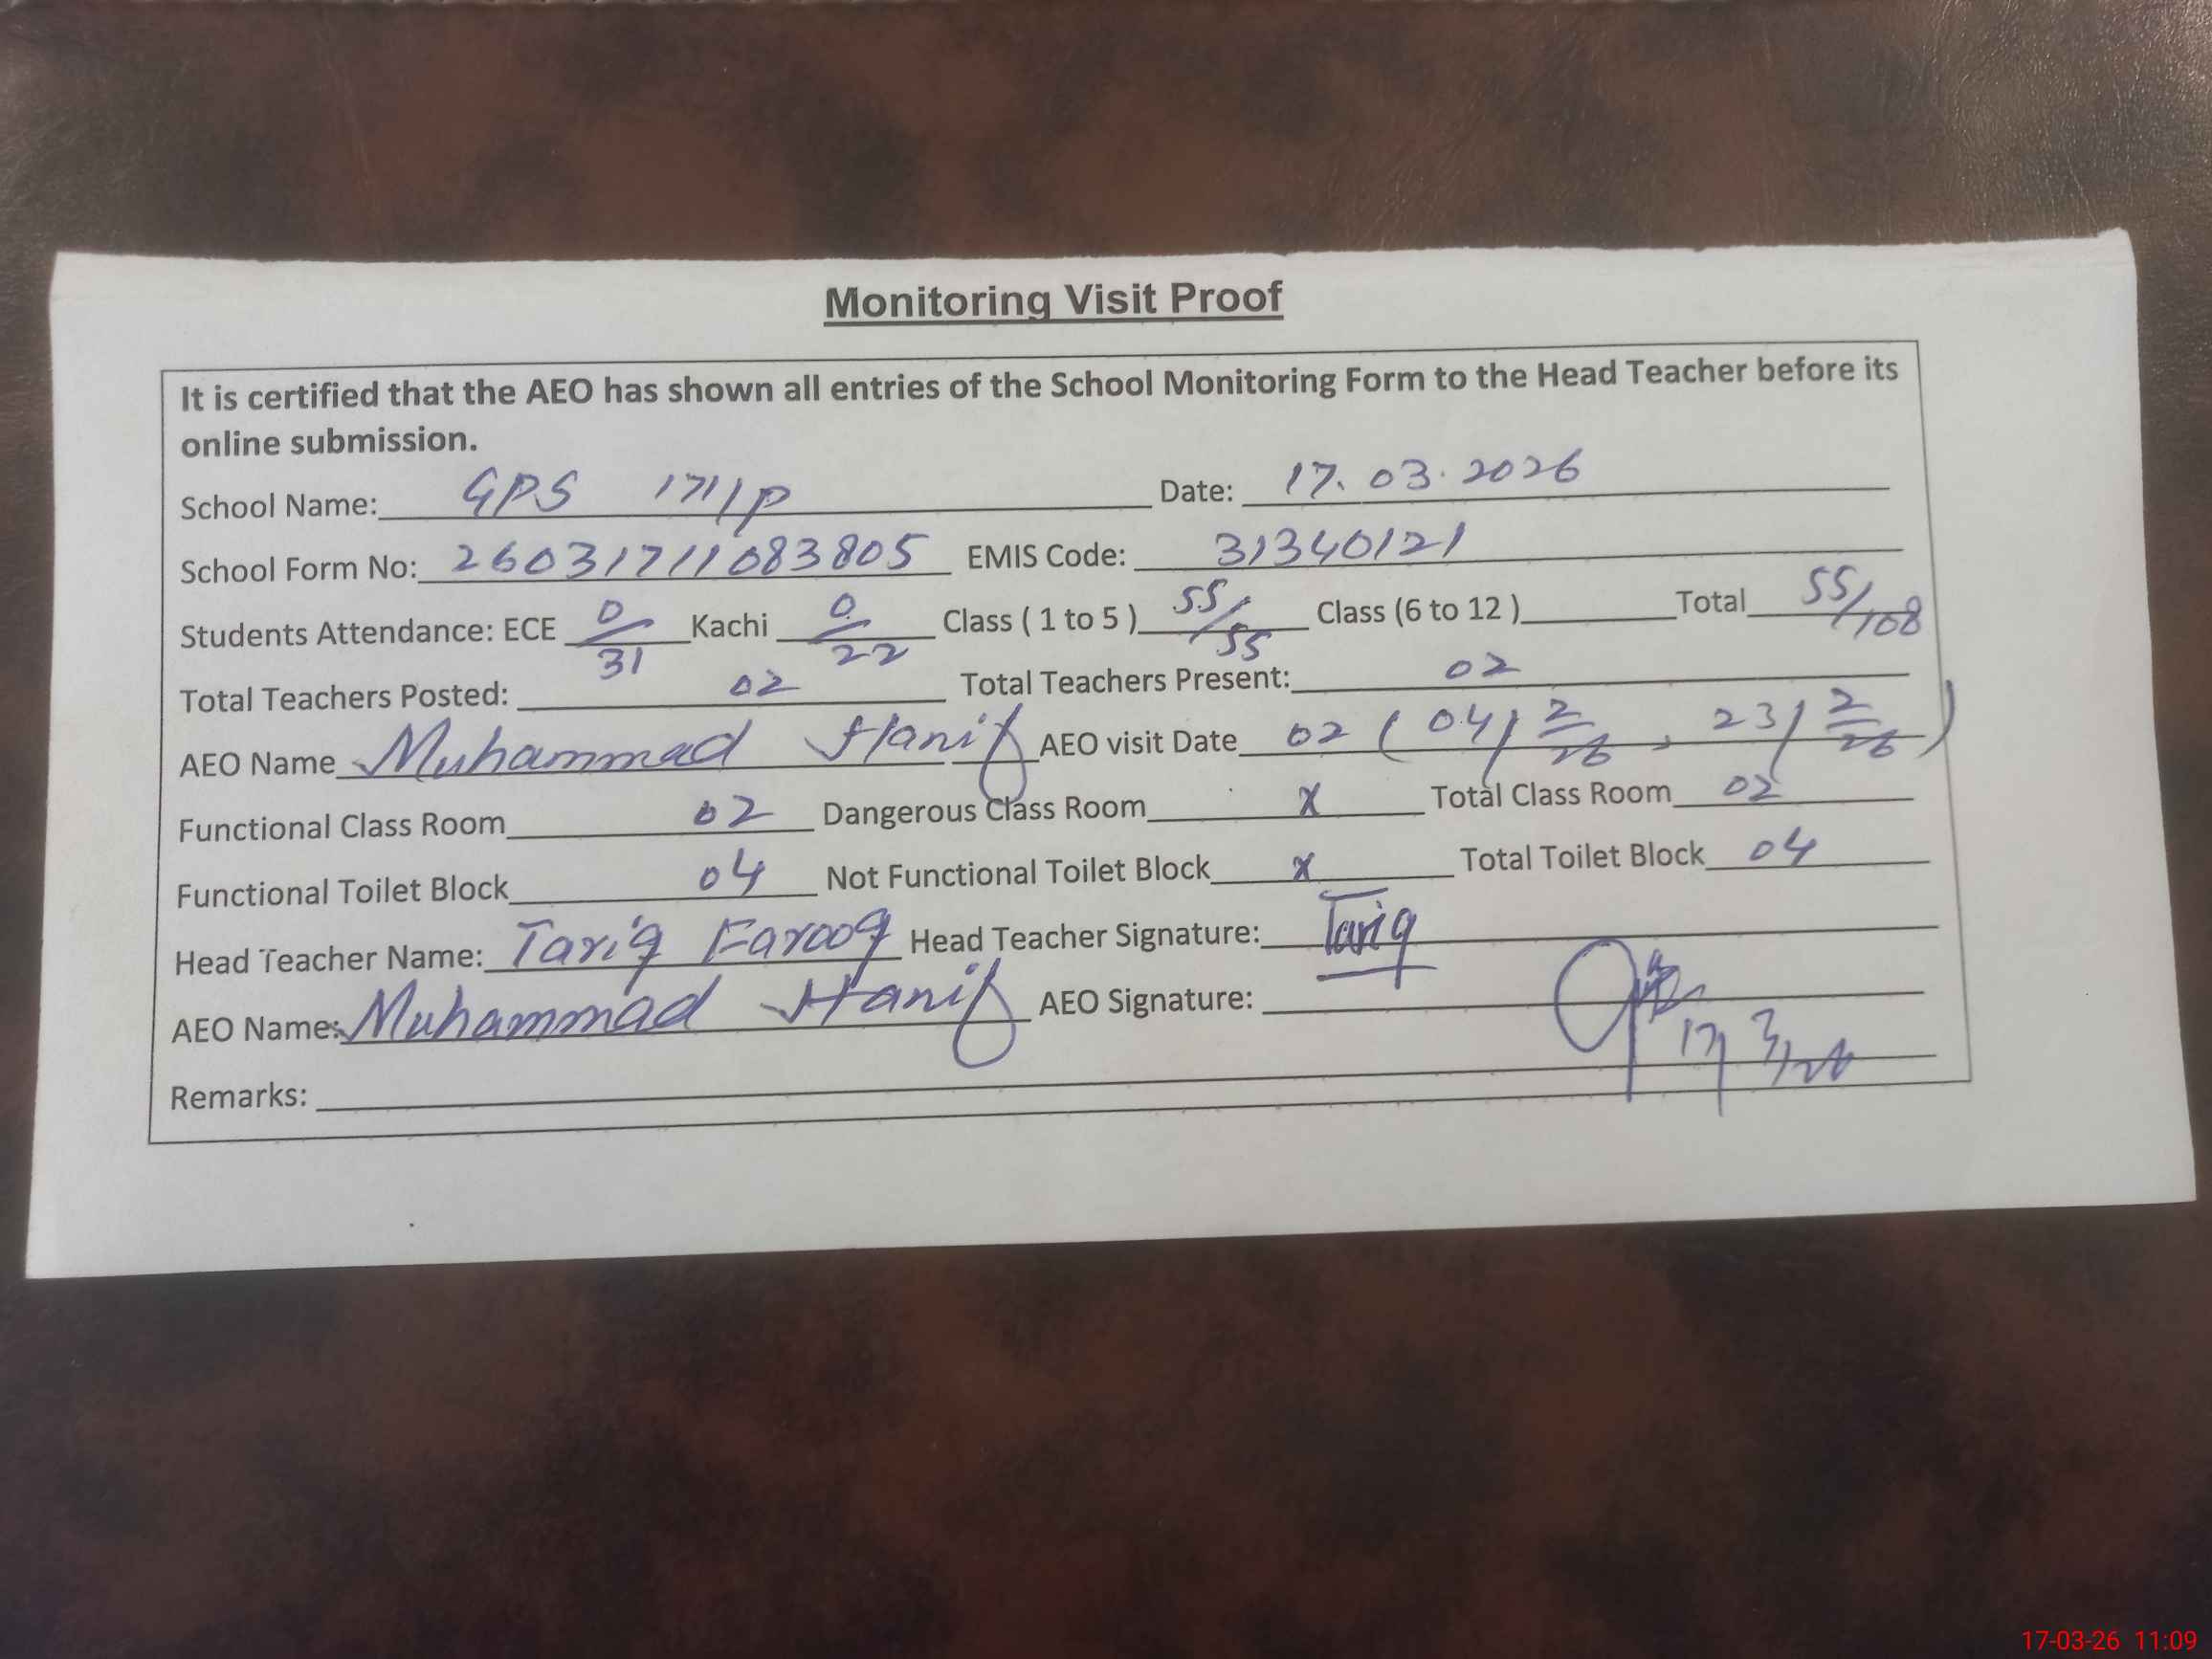 Monitoring Visit Proof
It is certified that the AEO has shown all entries of the School Monitoring Form to the Head Teacher before its
online submission.
School Name: GPS 171/P Date: 17.03.2026
School Form No: 26031711083805 EMIS Code: 31340121
Students Attendance: ECE 0/31 Kachi 0/22 Class ( 1 to 5 ) 55/55 Class (6 to 12 ) Total 55/108
Total Teachers Posted: 02 Total Teachers Present: 02
AEO Name Muhammad Hanif AEO visit Date 02 ( 04/2/26, 23/2/26 )
Functional Class Room 02 Dangerous Class Room x Total Class Room 02
Functional Toilet Block 04 Not Functional Toilet Block x Total Toilet Block 04
Head Teacher Name: Tariq Farooq Head Teacher Signature: Tariq
AEO Name: Muhammad Hanif AEO Signature:
17/3/26
Remarks:
17-03-26 11:09